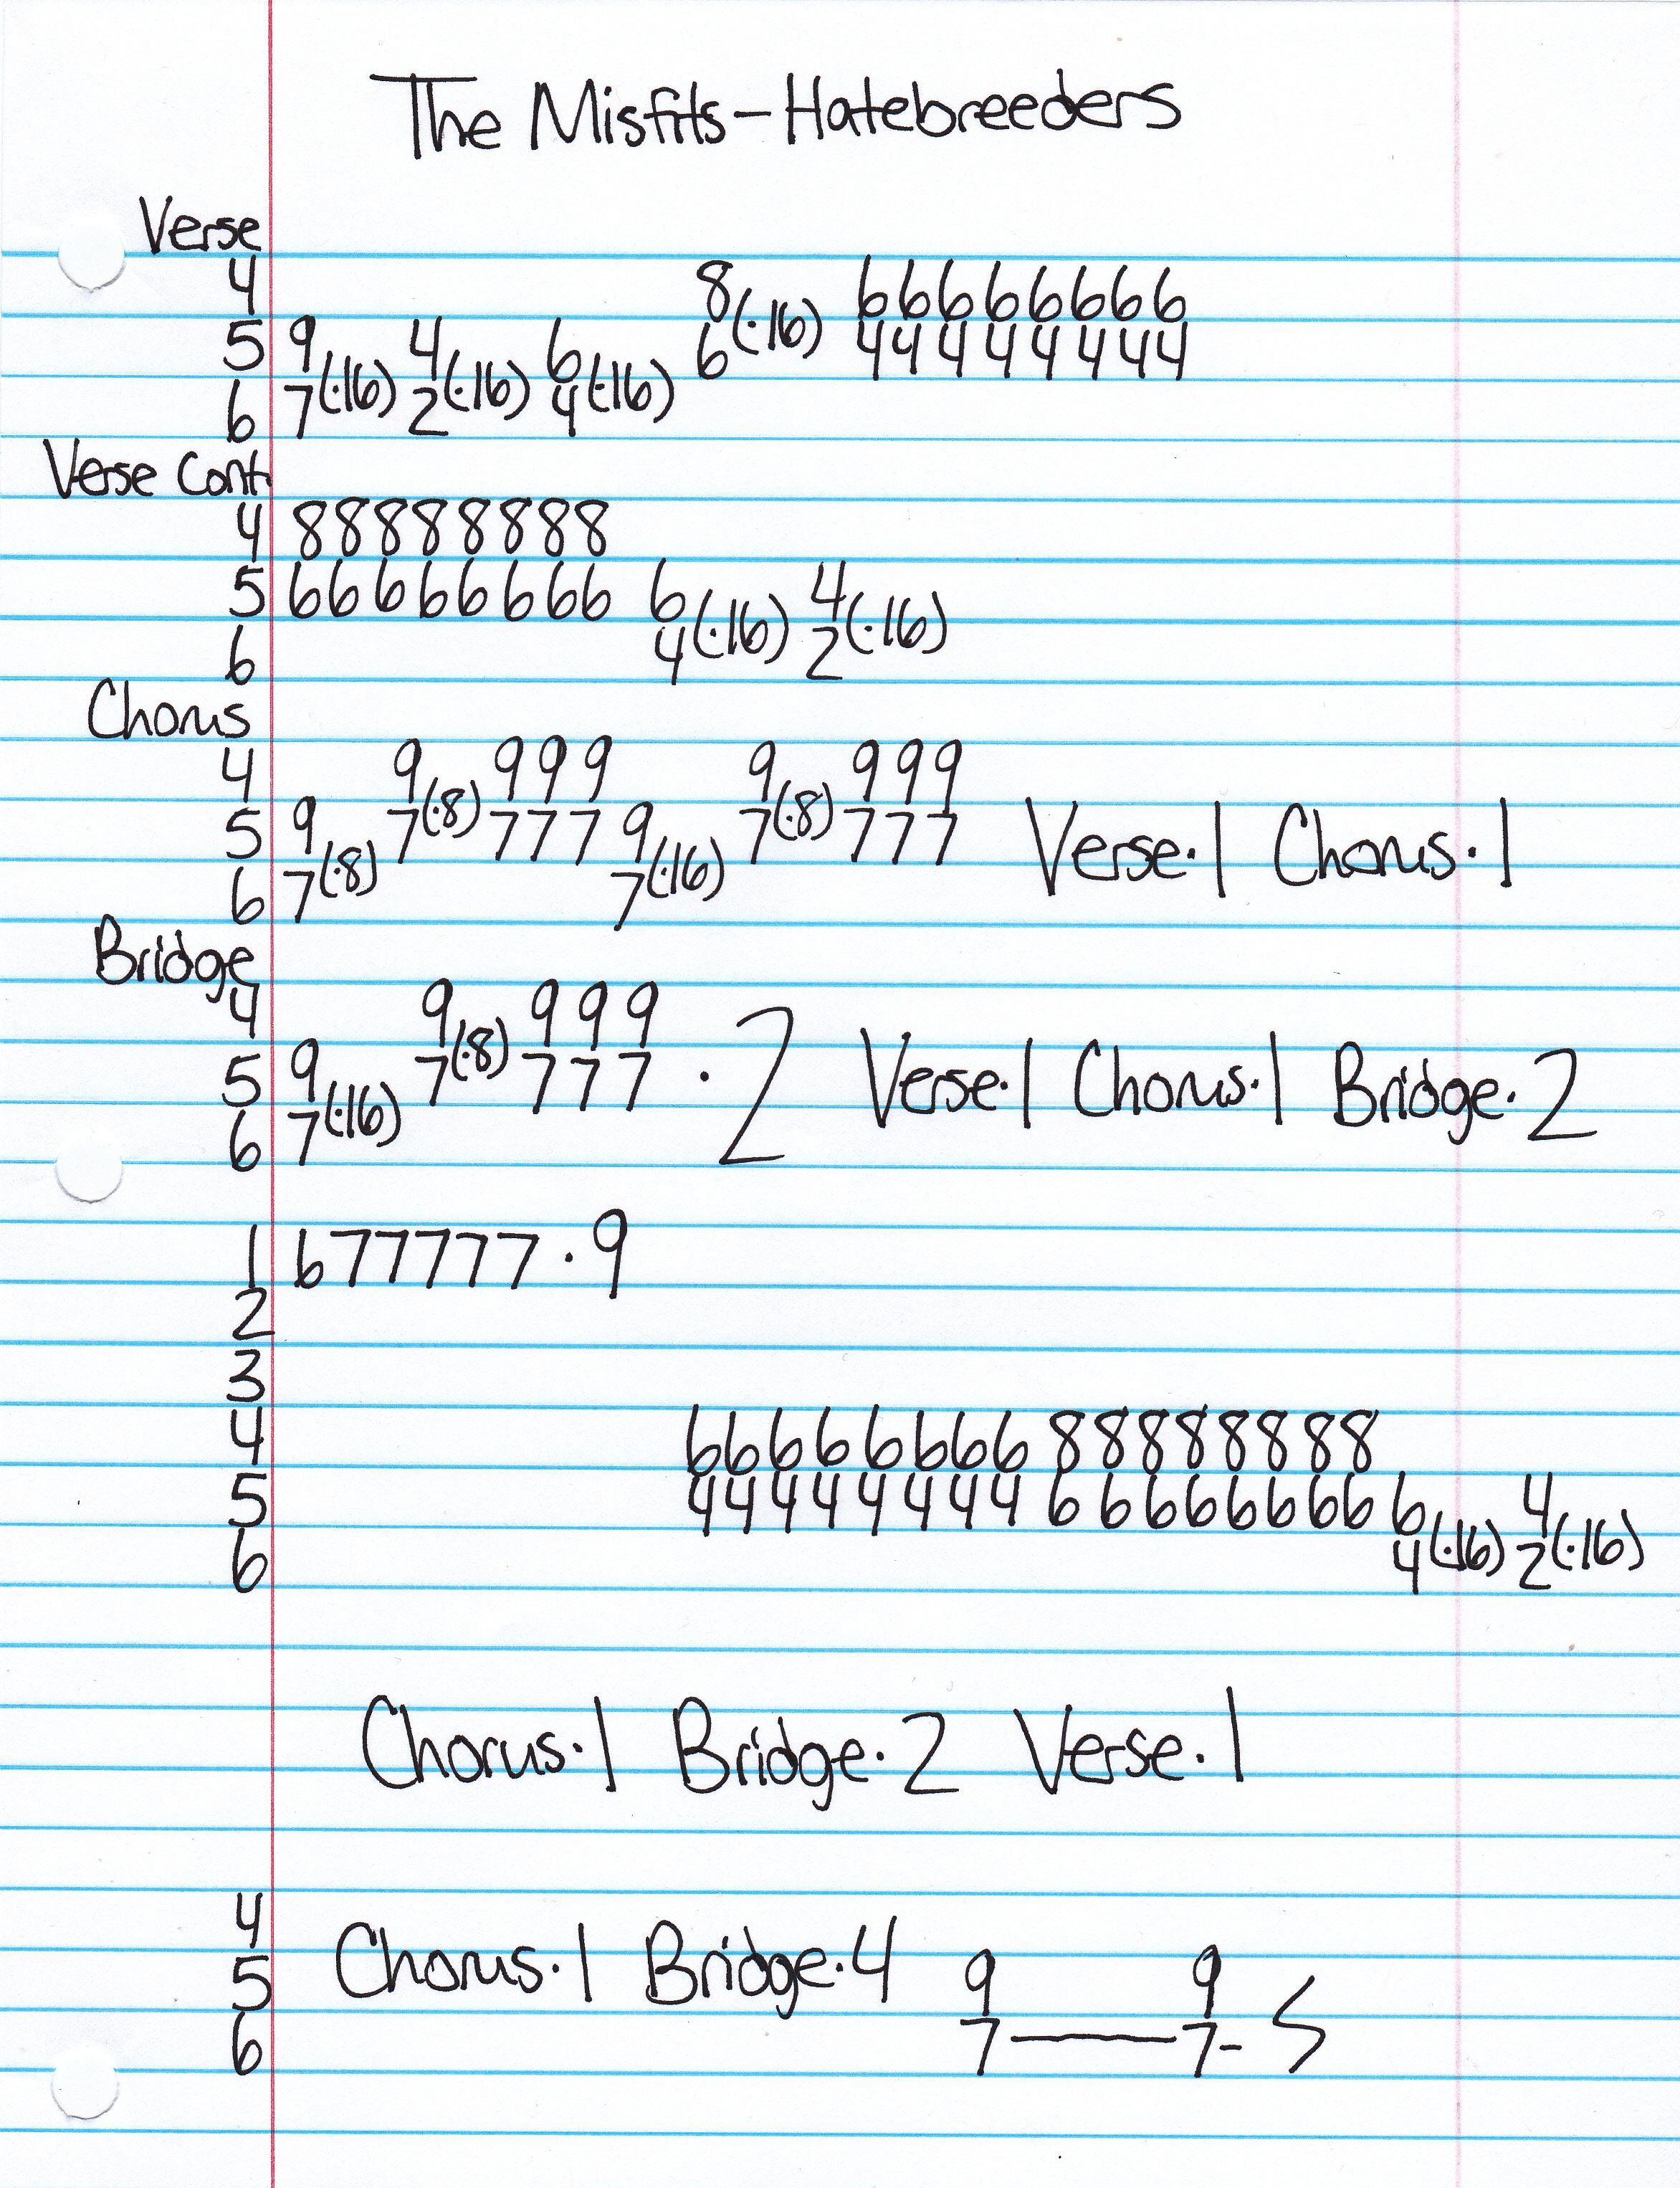 The Misfits-Hatebreeders
Verse
4 8(·16) 66666666
5 9(·16) 4(·16) 6(·16) 6 44444444
6 7 2 4
Verse Cont.
4 88888888
5 66666666 6(·16) 4(·16)
6 4 2
Chorus
4 9(·8) 999 9(·8) 999
5 9(·8) 7 777 9(·16) 7 777 Verse·1 Chorus·1
6 7 7
Bridge
4 9(·8) 999
5 9(·16) 7 777 ·2 Verse·1 Chorus·1 Bridge·2
6 7
1 677777·9
2
3
4 66666666 88888888
5 44444444 66666666 6(·16) 4(·16)
6 4 2
Chorus·1 Bridge·2 Verse·1
4
5 Chorus·1 Bridge·4 9 9
6 7—7-